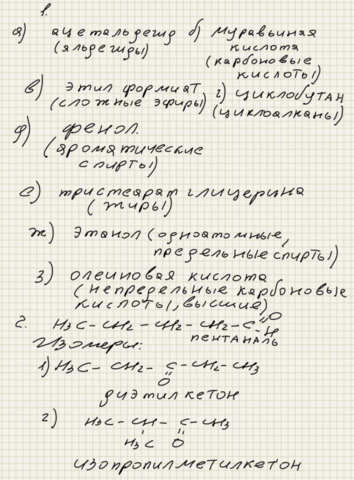 1.
а) ацетальдегид б) муравьиная
(альдегиды) кислота
(карбоновые
кислоты)
в) этил формиат г) циклобутан
(сложные эфиры) (циклоалканы)
д) фенол.
(ароматические
спирты)
е) тристеарат глицерина
(жиры)
ж) этанол (одноатомные,
предельные спирты)
з) олеиновая кислота
(непредельные карбоновые
кислоты, высшие)
2. H₃C – CH₂ – CH₂ – CH₂ – C =O – H
пентаналь
Изомеры:
1) H₃C – CH₂ – C – CH₂ – CH₃
O
диэтилкетон
2) H₃C – CH – C – CH₃
H₃C O
изопропилметилкетон